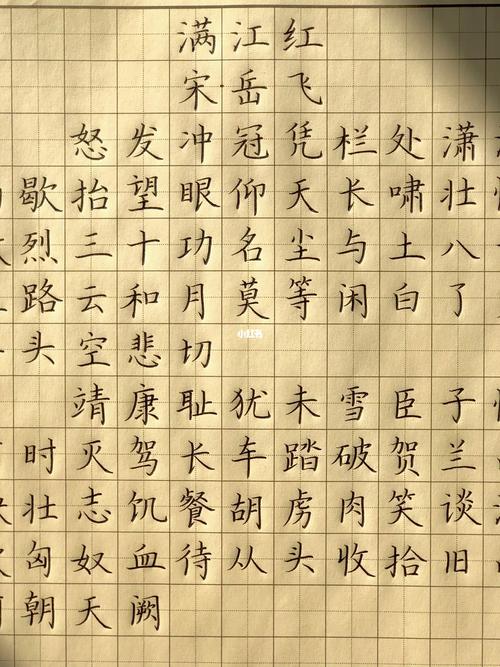 满江红
宋·岳飞
怒发冲冠凭栏处潇
歇抬望眼仰天长啸壮
烈三十功名尘与土八
路云和月莫等闲白了
头空悲切
靖康耻犹未雪臣子
时灭驾长车踏破贺兰
壮志饥餐胡虏肉笑谈
匈奴血待从头收拾旧
朝天阙
小红书